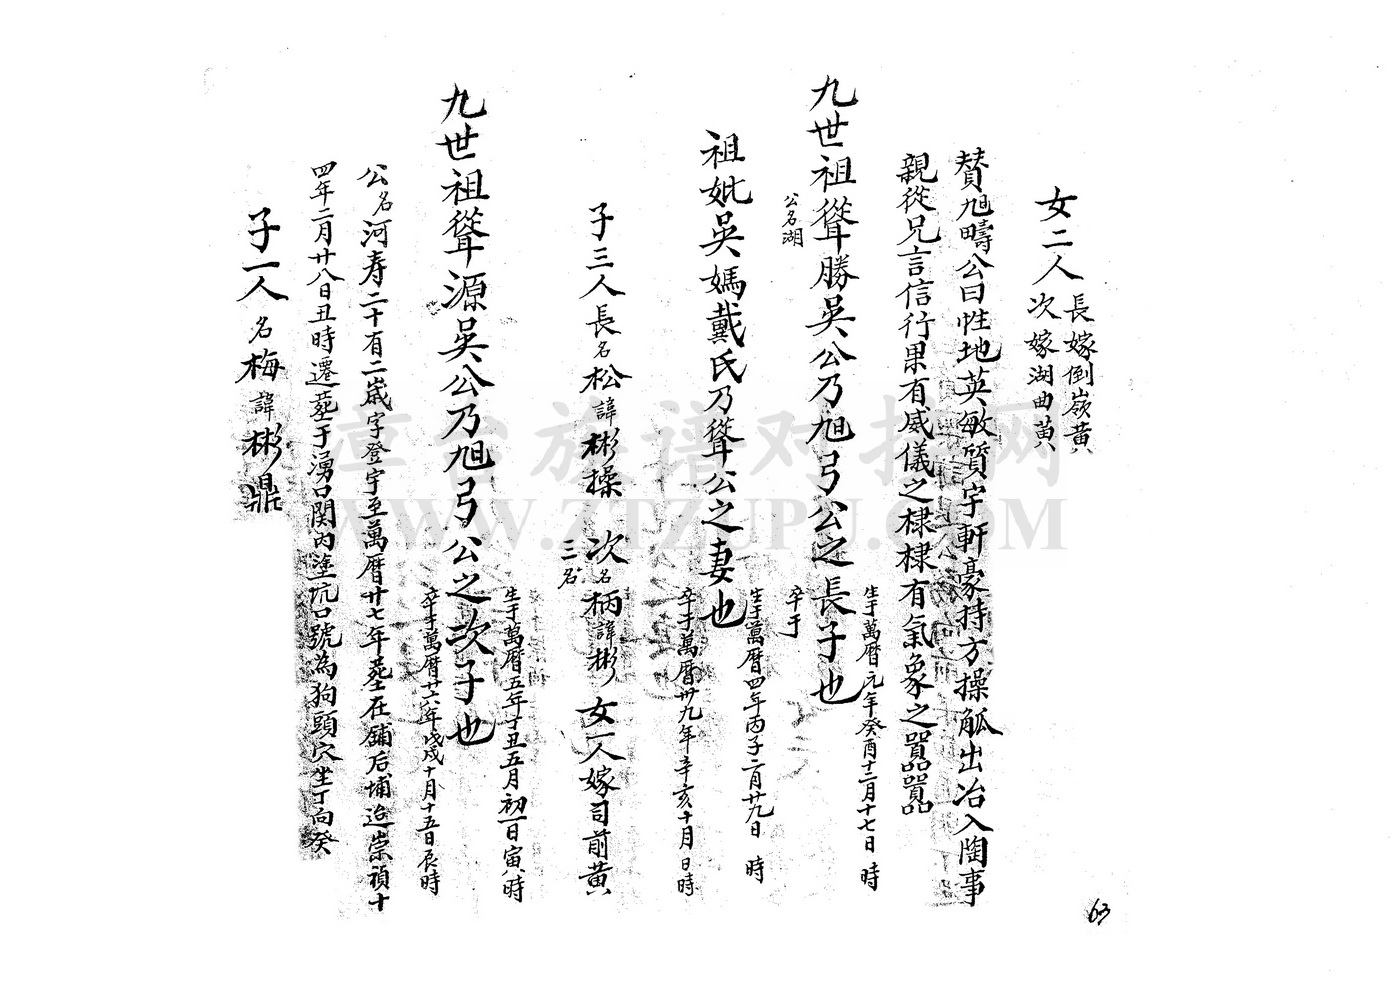 女二人
長嫁倒嶺黃
次嫁湖曲黃
賛旭疇公曰性地英敏質宇軒豪持方操觚出冶入陶事
親從兄言信行果有威儀之棣棣有氣象之囂囂
九世祖聳勝吳公乃旭弓公之長子也
生于萬曆元年癸酉十二月十七日 時
卒于
公名湖
祖妣吳媽戴氏乃聳公之妻也
生于萬曆四年丙子二月廿九日 時
卒于萬曆卅九年辛亥十月 日時
子三人長名松諱彬操 次名柄諱彬 女一人嫁司前黃
三名
九世祖聳源吳公乃旭弓公之次子也
生于萬曆五年丁丑五月初一日寅時
卒于萬曆廿六年戊戌十月十五日辰時
公名河寿二十有二歲字登宇至萬曆廿七年塟在鋪后埔迨崇禎十
四年二月廿八日丑時遷塟于湧口関內塗坑口號為狗頭穴坐丁向癸
子一人名梅諱彬鼎
63
漳台族谱对接网
WWW.ZTZUPU.COM